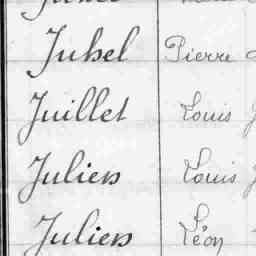 Juhel Pierre
Juillet Louis
Juliers Louis
Juliers Léon